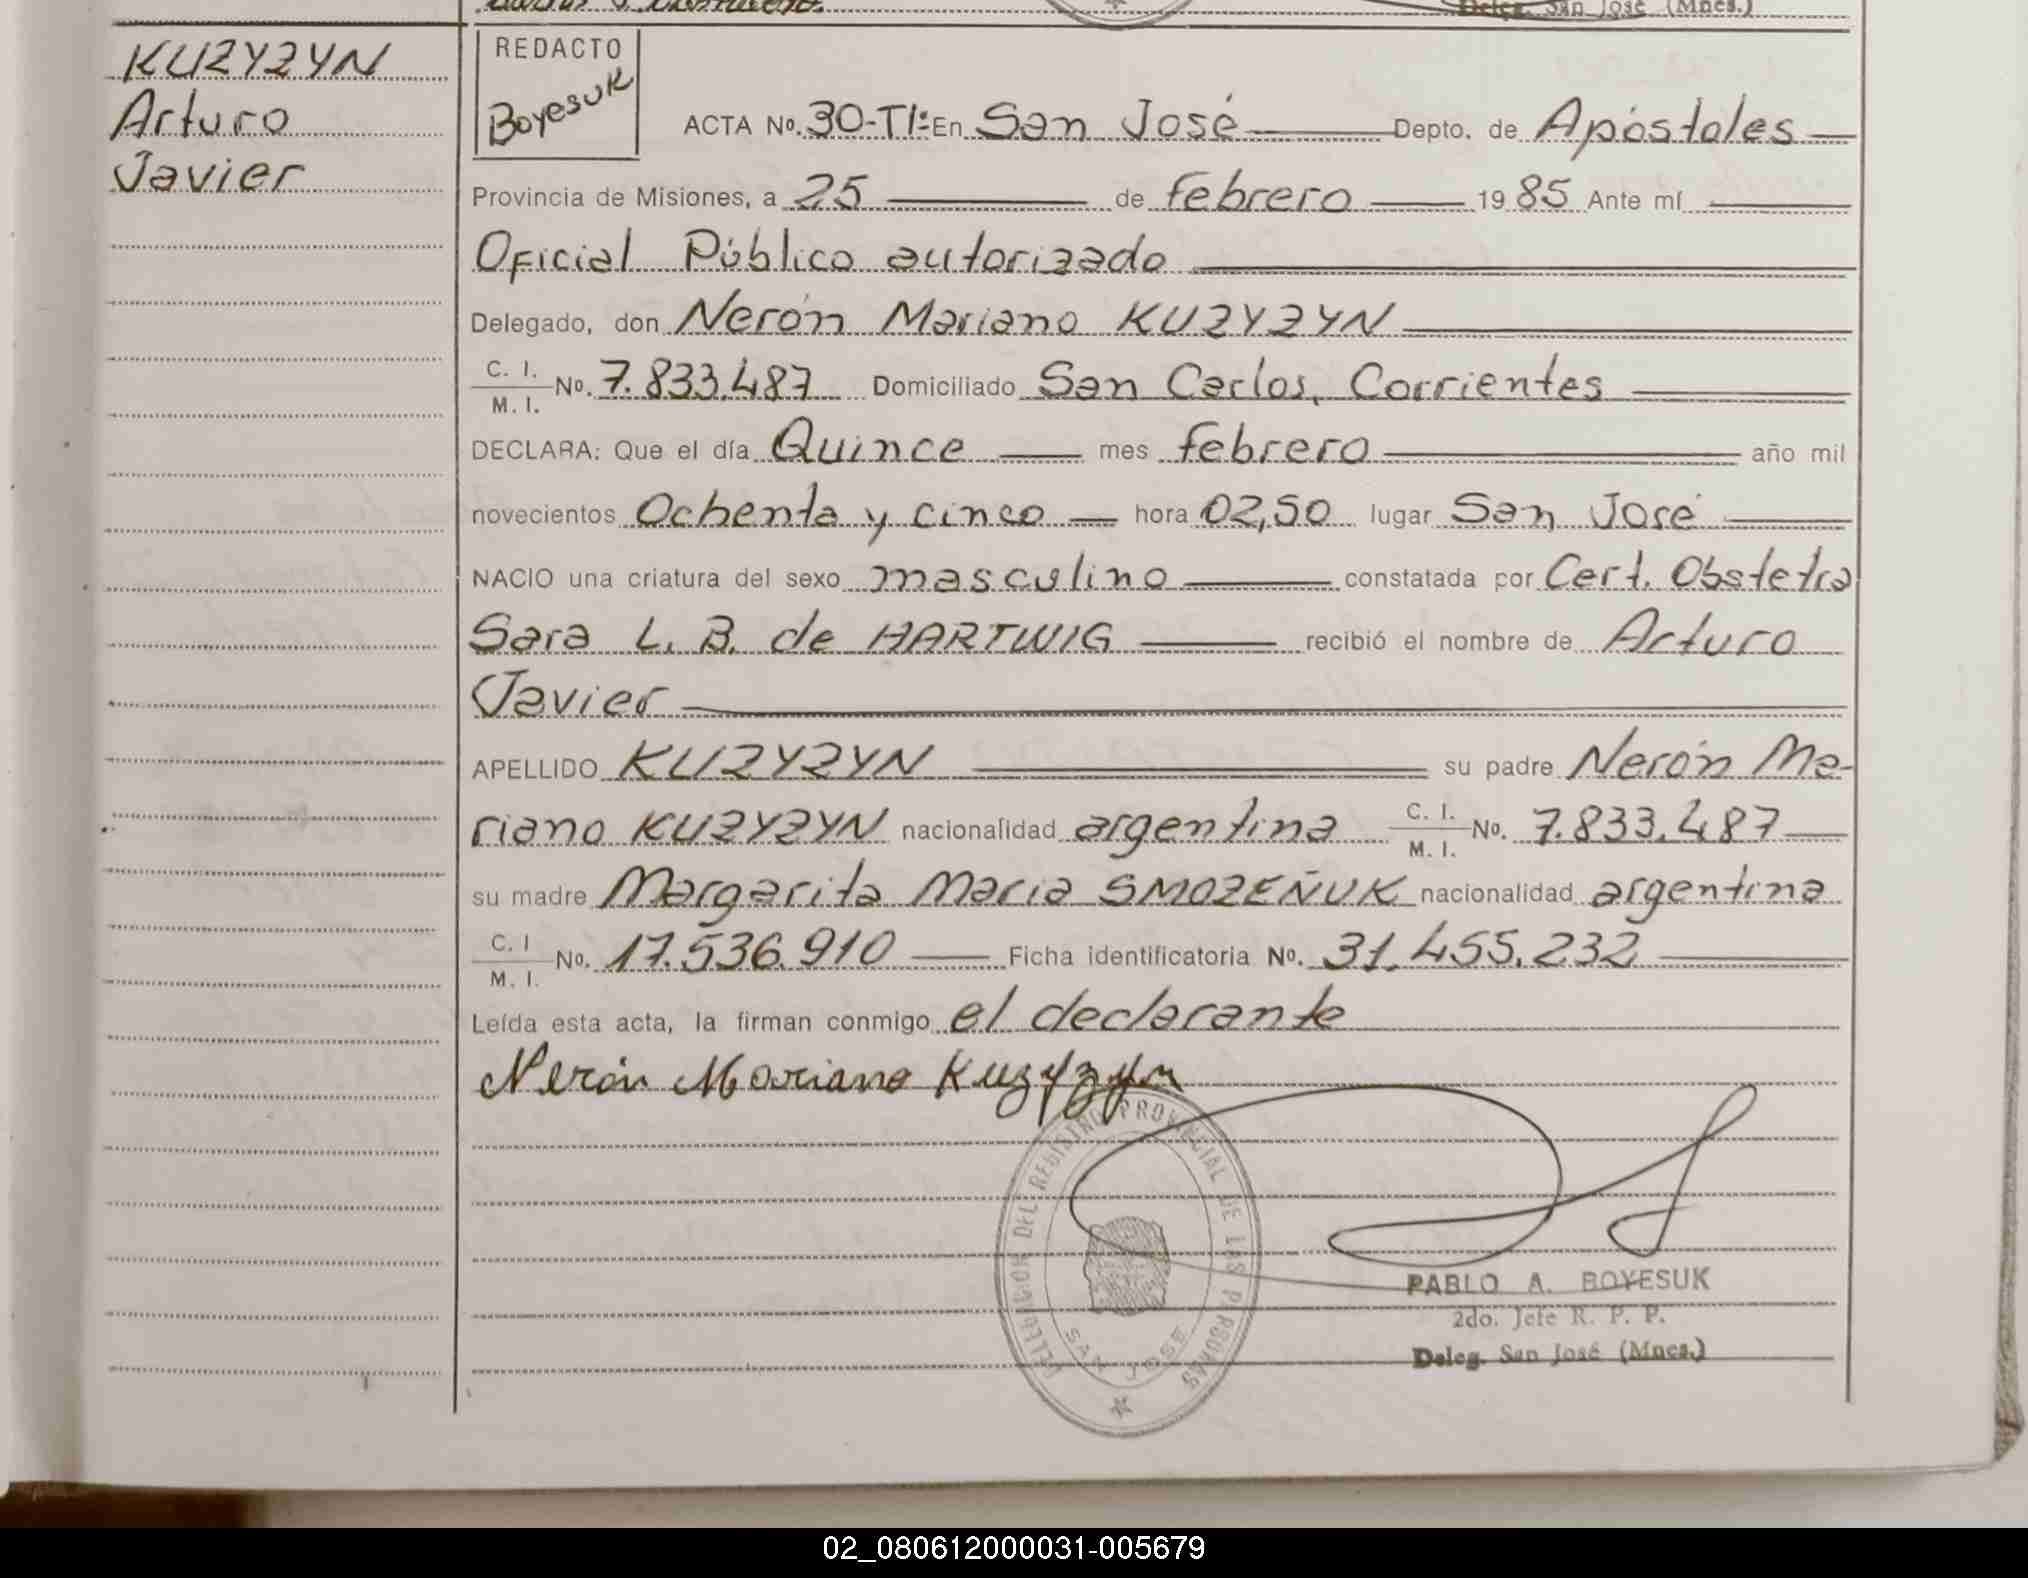 Deleg. San José (Mnes.)
KUZYZYN
Arturo
Javier
REDACTO
Boyesuk
ACTA Nº. 30-TI: En San José Depto. de Apóstoles
Provincia de Misiones, a 25 de febrero 1985 Ante mí
Oficial Público autorizado
Delegado, don Nerón Mariano KUZYZYN
C. I.
M. I. Nº. 7.833.487 Domiciliado San Carlos, Corrientes
DECLARA: Que el día Quince mes febrero año mil
novecientos Ochenta y cinco hora 02,50 lugar San José
NACIO una criatura del sexo masculino constatada por Cert. Obstetra
Sara L. B. de HARTWIG recibió el nombre de Arturo
Javier
APELLIDO KUZYZYN su padre Nerón Ma-
riano KUZYZYN nacionalidad argentina C. I.
M. I. Nº. 7.833.487
su madre Margarita Maria SMOZEÑUK nacionalidad argentina
C. I
M. I. Nº. 17.536.910 Ficha identificatoria Nº. 31.455.232
Leída esta acta, la firman conmigo el declarante
Nerón Mariano Kuzyzyn
DELEGACION DEL REGISTRO PROVINCIAL DE LAS PERSONAS
SAN JOSE
PABLO A. BOYESUK
2do. Jefe R. P. P.
Deleg. San José (Mnes.)
02_080612000031-005679